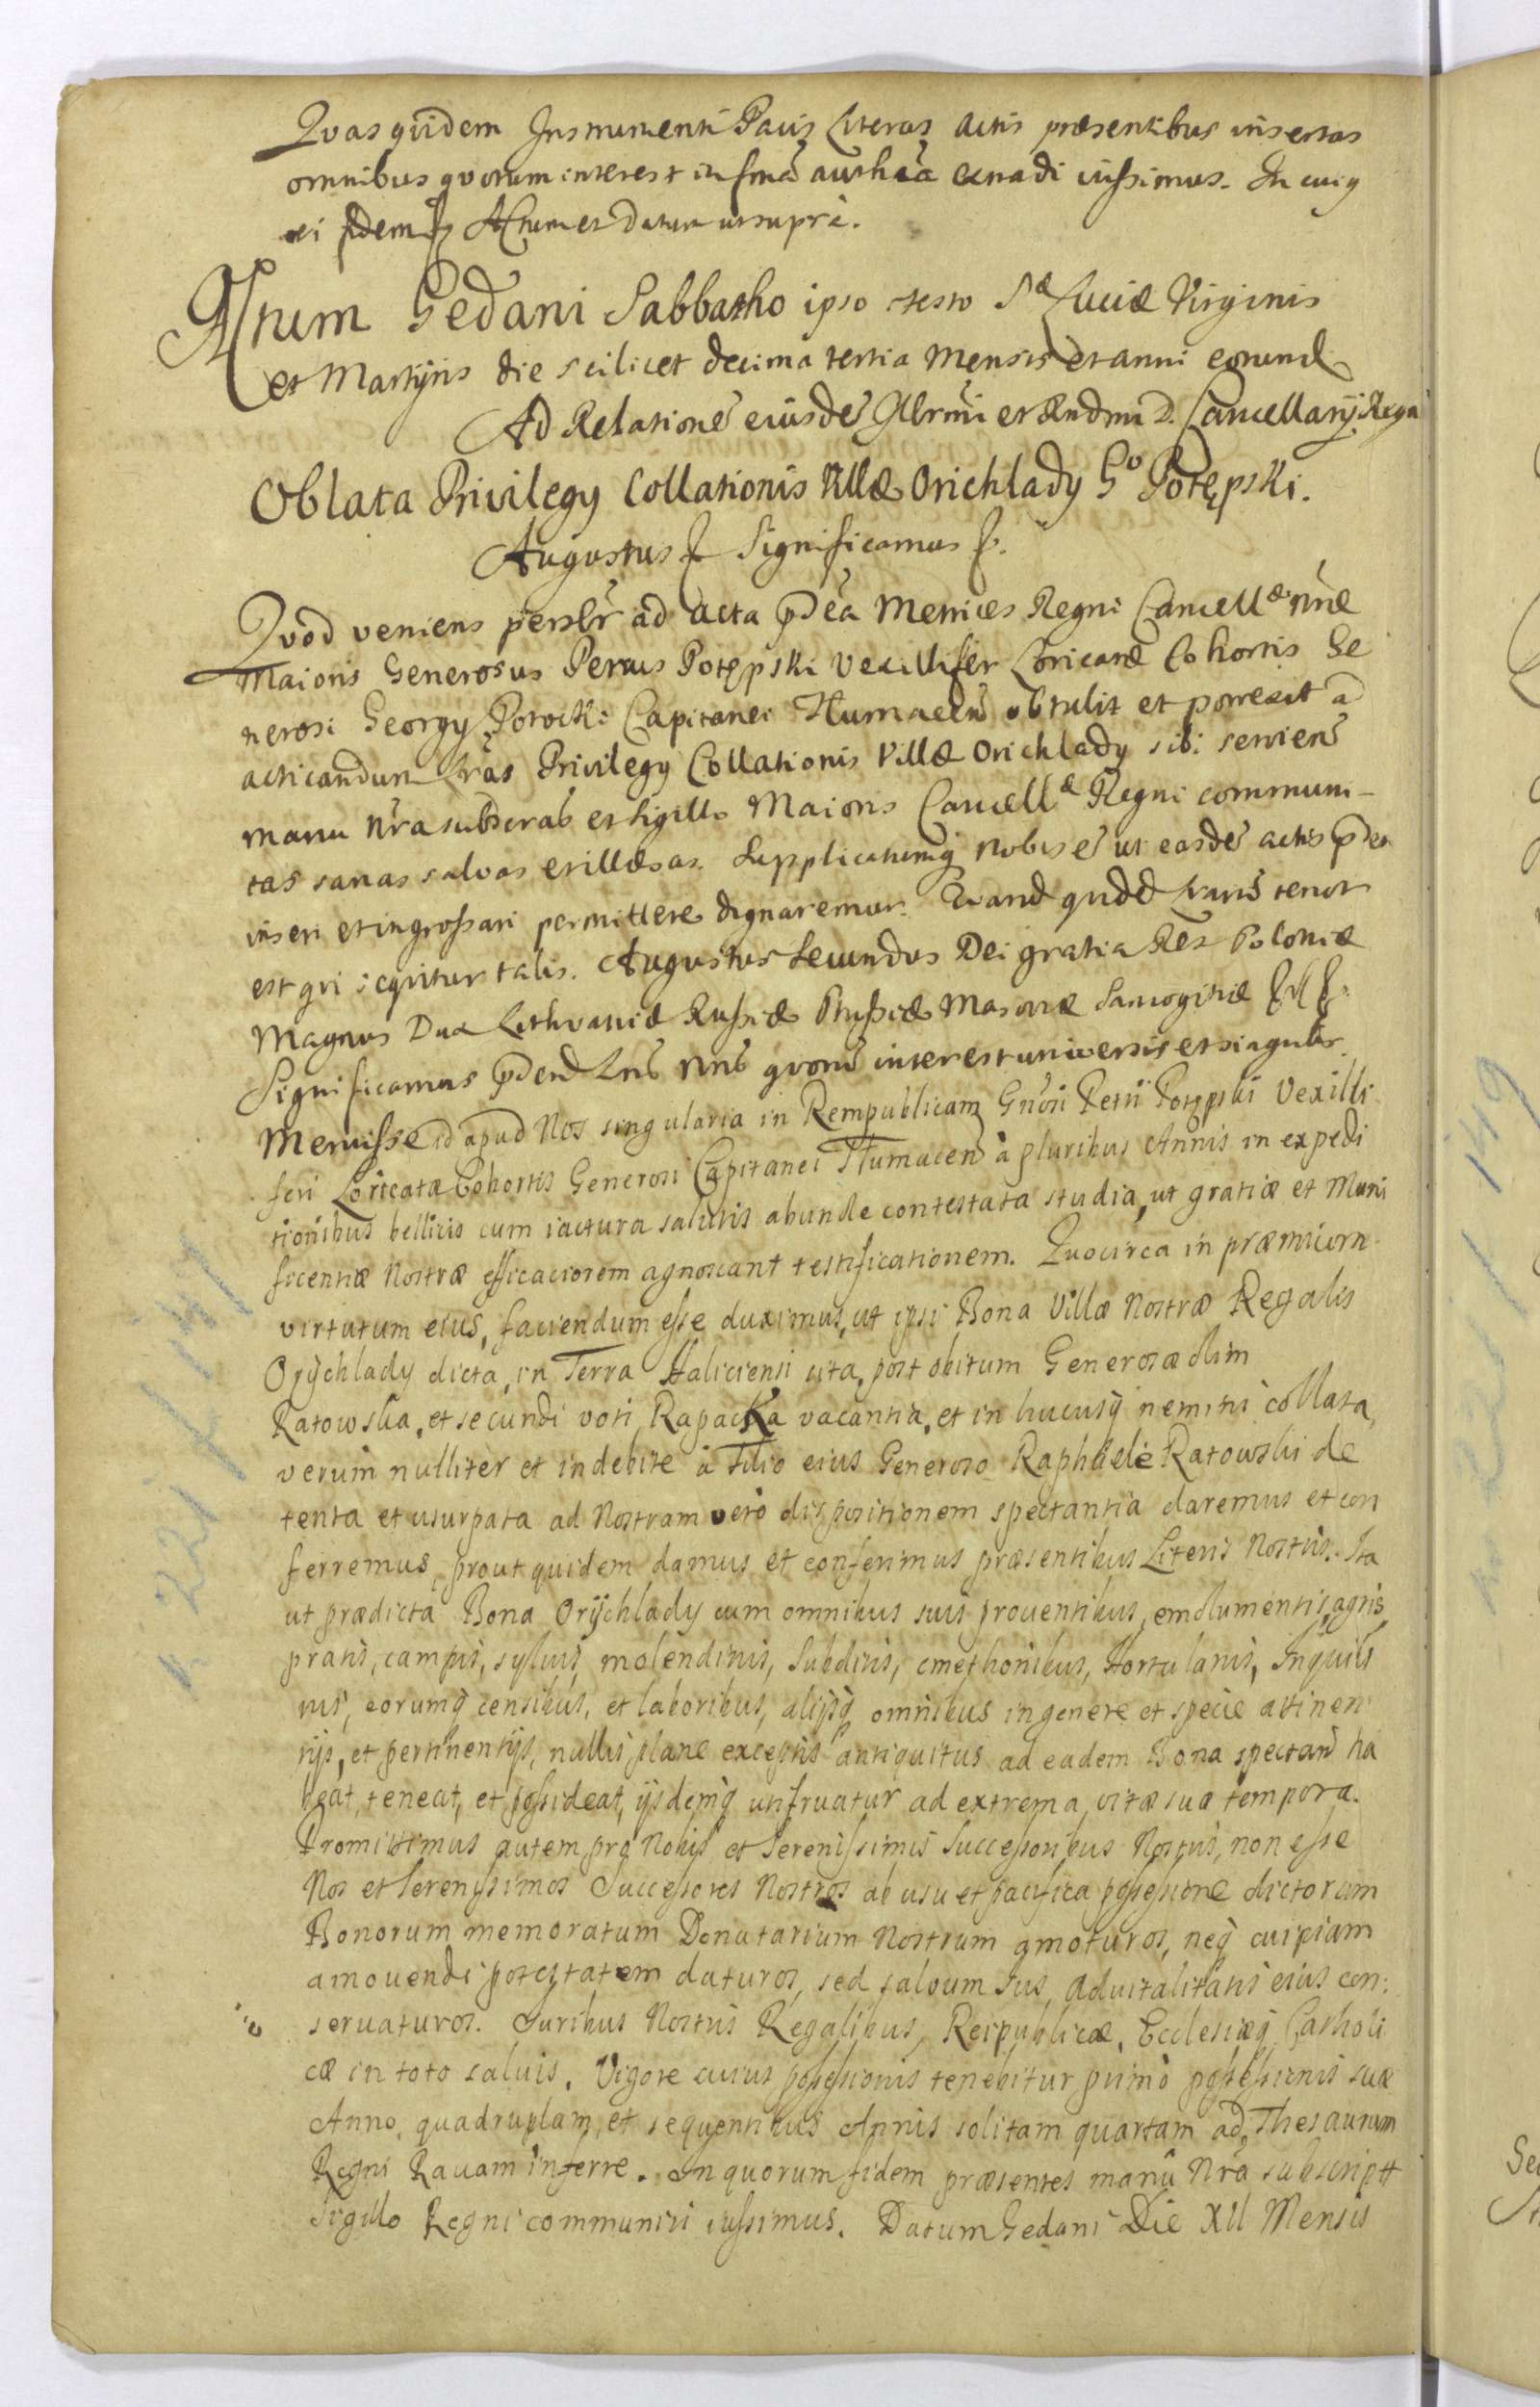 Quas quidem Instrumenti Pacis Literas Actis præsentibus insertas
omnibus quorum interest in forma auth̃ca extradi iussimus. In cuiq
rei fidem Actum et Datum ut supra.
Actum Gedani Sabbatho ipso festo S æ Luciæ Virginis
et Martyris die scilicet decima tertia Mensis et anni eorund
Ad Relationẽ eiusdẽ Illrmi et Rndmi D. Cancellarij Regni
Oblata Privilegy Collationis Villæ Orichlady Gº Potępski.
Augustus Significamus
Quod veniens persltr ad Acta p̃dca Metrices Regni Cancellæ nr̃æ
Maioris Generosus Petrus Potępski Vexillifer Loricatæ Cohortis Ge
nerosi Georgy Potocki Capitanei Tlumaceñ obtulit et porrexit ad
acticandum Lr̃as Privilegy Collationis Villæ Orichlady sibi servieñ
manu Nr̃a subscrab et Sigillo Maioris Cancellæ Regni communi-
tas sanas salvas et illæsas. Supplicatumq nobis ẽ ut easdẽ actis p̃des
inseri et ingrossari permittere dignaremur. Quard quidẽ Lrarũ tenor
est qui sequitur talis. Augustus Secundus Dei gratia Rex Poloniæ
Magnus Dux Lithvaniæ Russiæ Prussiæ Masoviæ Samogitiæ
Significamus p̃deñ Lrib Nrib quorũ interest universis et singulis.
Meruisse id apud Nos singularia in Rempublicam Gnõsi Petri Potępski Vexilli
feri Loricatæ Cohortis Generosi Capitanei Tlumaceñ à pluribus Annis in expedi
tionibus bellicis cum iactura salutis abunde contestata studia, ut gratiæ et Muni
ficentiæ Nostræ efficaciorem agnoscant testificationem. Quocirca in præmium
virtutum eius, faciendum esse duximus, ut ipsi Bona Villæ Nostræ Regalis
Orÿchlady dicta, in Terra Haliciensi sita, post obitum Generosæ olim
Ratowska, et secundi voti Rapacka vacantia, et in hucusq nemini collata,
verum nulliter et indebite à Filio eius Generoso Raphaele Ratowski de
tenta et usurpata ad Nostram vero dispositionem spectantia daremus et con
ferremus, prout quidem damus et conferimus præsentibus Literis Nostris. Ita
ut prædicta Bona Orÿchlady cum omnibus suis prouentibus, emolumentis, agris,
pratis, campis, syluis, molendinis, Subditis, cmethonibus, Hortulanis, Inquili
nis, eorumq censibus, et laboribus, alijsq omnibus in genere et specie attinen
tijs, et pertinentijs, nullis plane exceptis antiquitus ad eadem Bona spectañ ha
beat, teneat, et possideat, ijsdemq utifruatur ad extrema vitæ suæ tempora.
Promittimus autem pro Nobis et Serenissimis Successoribus Nostris, non esse
Nos et Serenissimos Successores Nostros ab usu et pacifica possessione dictorum
Bonorum memoratum Donatarium Nostrum amoturos, neq cuipiam
amouendi potestatem daturos, sed saluum Ius Aduitalitatis eius con:
seruaturos. Iuribus Nostris Regalibus, Reipublicæ, Ecclesiæq Catholi
cæ in toto saluis. Vigore cuius possessionis tenebitur primò possessionis suæ
Anno, quadruplam, et sequentibus Annis solitam quartam ad Thesaurum
Regni Rauam inferre. In quorum fidem præsentes manu Nrã subscriptt
Sigillo Regni communiri iussimus. Datum Gedani Die XII Mensis